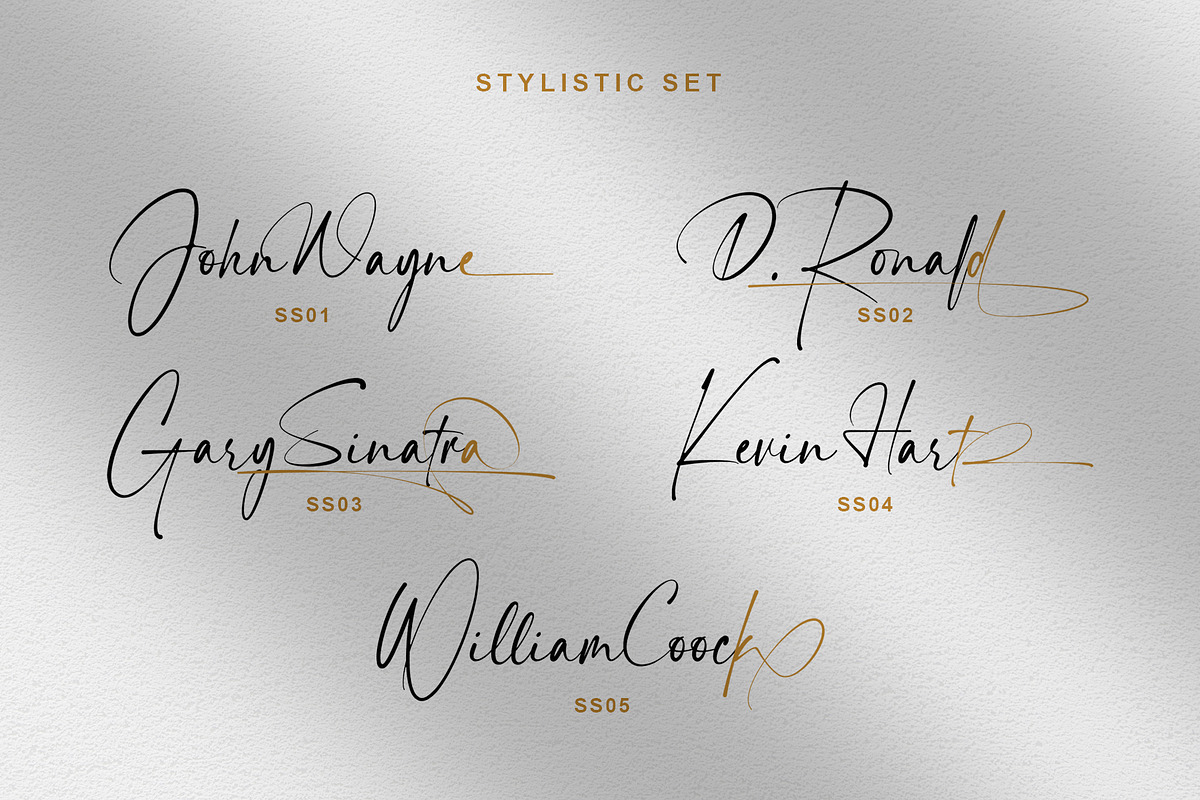 STYLISTIC SET
John Wayne
SS01
D. Ronald
SS02
Gary Sinatra
SS03
Kevin Hart
SS04
William Coock
SS05